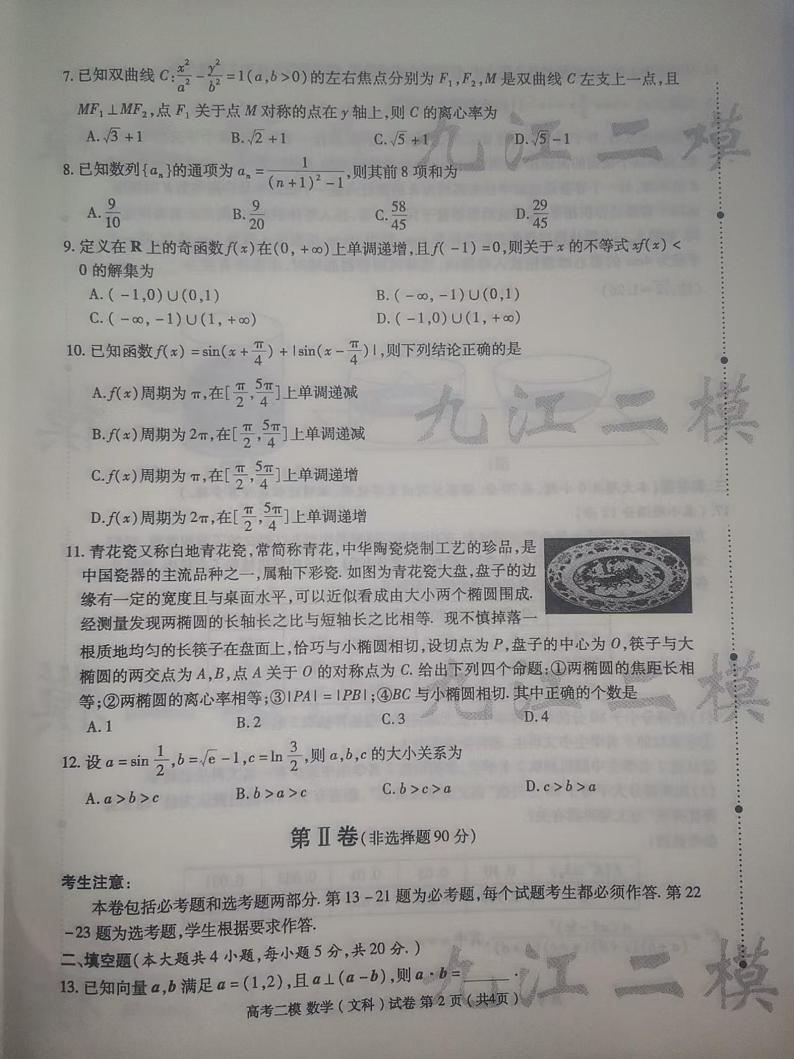 7.已知双曲线 C:x²/a²-y²/b²=1(a,b>0)的左右焦点分别为 F₁,F₂,M 是双曲线 C 左支上一点,且
MF₁⊥MF₂,点 F₁ 关于点 M 对称的点在 y 轴上,则 C 的离心率为
A.√3+1 B.√2+1 C.√5+1 D.√5-1
8.已知数列{aₙ}的通项为 aₙ=1/((n+1)²-1),则其前 8 项和为
A.9/10 B.9/20 C.58/45 D.29/45
9.定义在 R 上的奇函数 f(x)在(0,+∞)上单调递增,且 f(-1)=0,则关于 x 的不等式 xf(x)<
0 的解集为
A.(-1,0)∪(0,1) B.(-∞,-1)∪(0,1)
C.(-∞,-1)∪(1,+∞) D.(-1,0)∪(1,+∞)
10.已知函数 f(x)=sin(x+π/4)+|sin(x-π/4)|,则下列结论正确的是
A.f(x)周期为 π,在[π/2,5π/4]上单调递减
B.f(x)周期为 2π,在[π/2,5π/4]上单调递减
C.f(x)周期为 π,在[π/2,5π/4]上单调递增
D.f(x)周期为 2π,在[π/2,5π/4]上单调递增
11.青花瓷又称白地青花瓷,常简称青花,中华陶瓷烧制工艺的珍品,是
中国瓷器的主流品种之一,属釉下彩瓷.如图为青花瓷大盘,盘子的边
缘有一定的宽度且与桌面水平,可以近似看成由大小两个椭圆围成.
经测量发现两椭圆的长轴长之比与短轴长之比相等.现不慎掉落一
根质地均匀的长筷子在盘面上,恰巧与小椭圆相切,设切点为 P,盘子的中心为 O,筷子与大
椭圆的两交点为 A,B,点 A 关于 O 的对称点为 C.给出下列四个命题:①两椭圆的焦距长相
等;②两椭圆的离心率相等;③|PA|=|PB|;④BC 与小椭圆相切.其中正确的个数是
A.1 B.2 C.3 D.4
12.设 a=sin 1/2,b=√e-1,c=ln 3/2,则 a,b,c 的大小关系为
A.a>b>c B.b>a>c C.b>c>a D.c>b>a
第Ⅱ卷(非选择题90分)
考生注意:
本卷包括必考题和选考题两部分.第 13-21 题为必考题,每个试题考生都必须作答.第 22
-23 题为选考题,学生根据要求作答.
二、填空题(本大题共 4 小题,每小题 5 分,共 20 分.)
13.已知向量 a,b 满足 a=(1,2),且 a⊥(a-b),则 a·b=____.
高考二模 数学(文科)试卷 第 2 页(共4页)
九江二模
九江二模
九江二模
九江二模